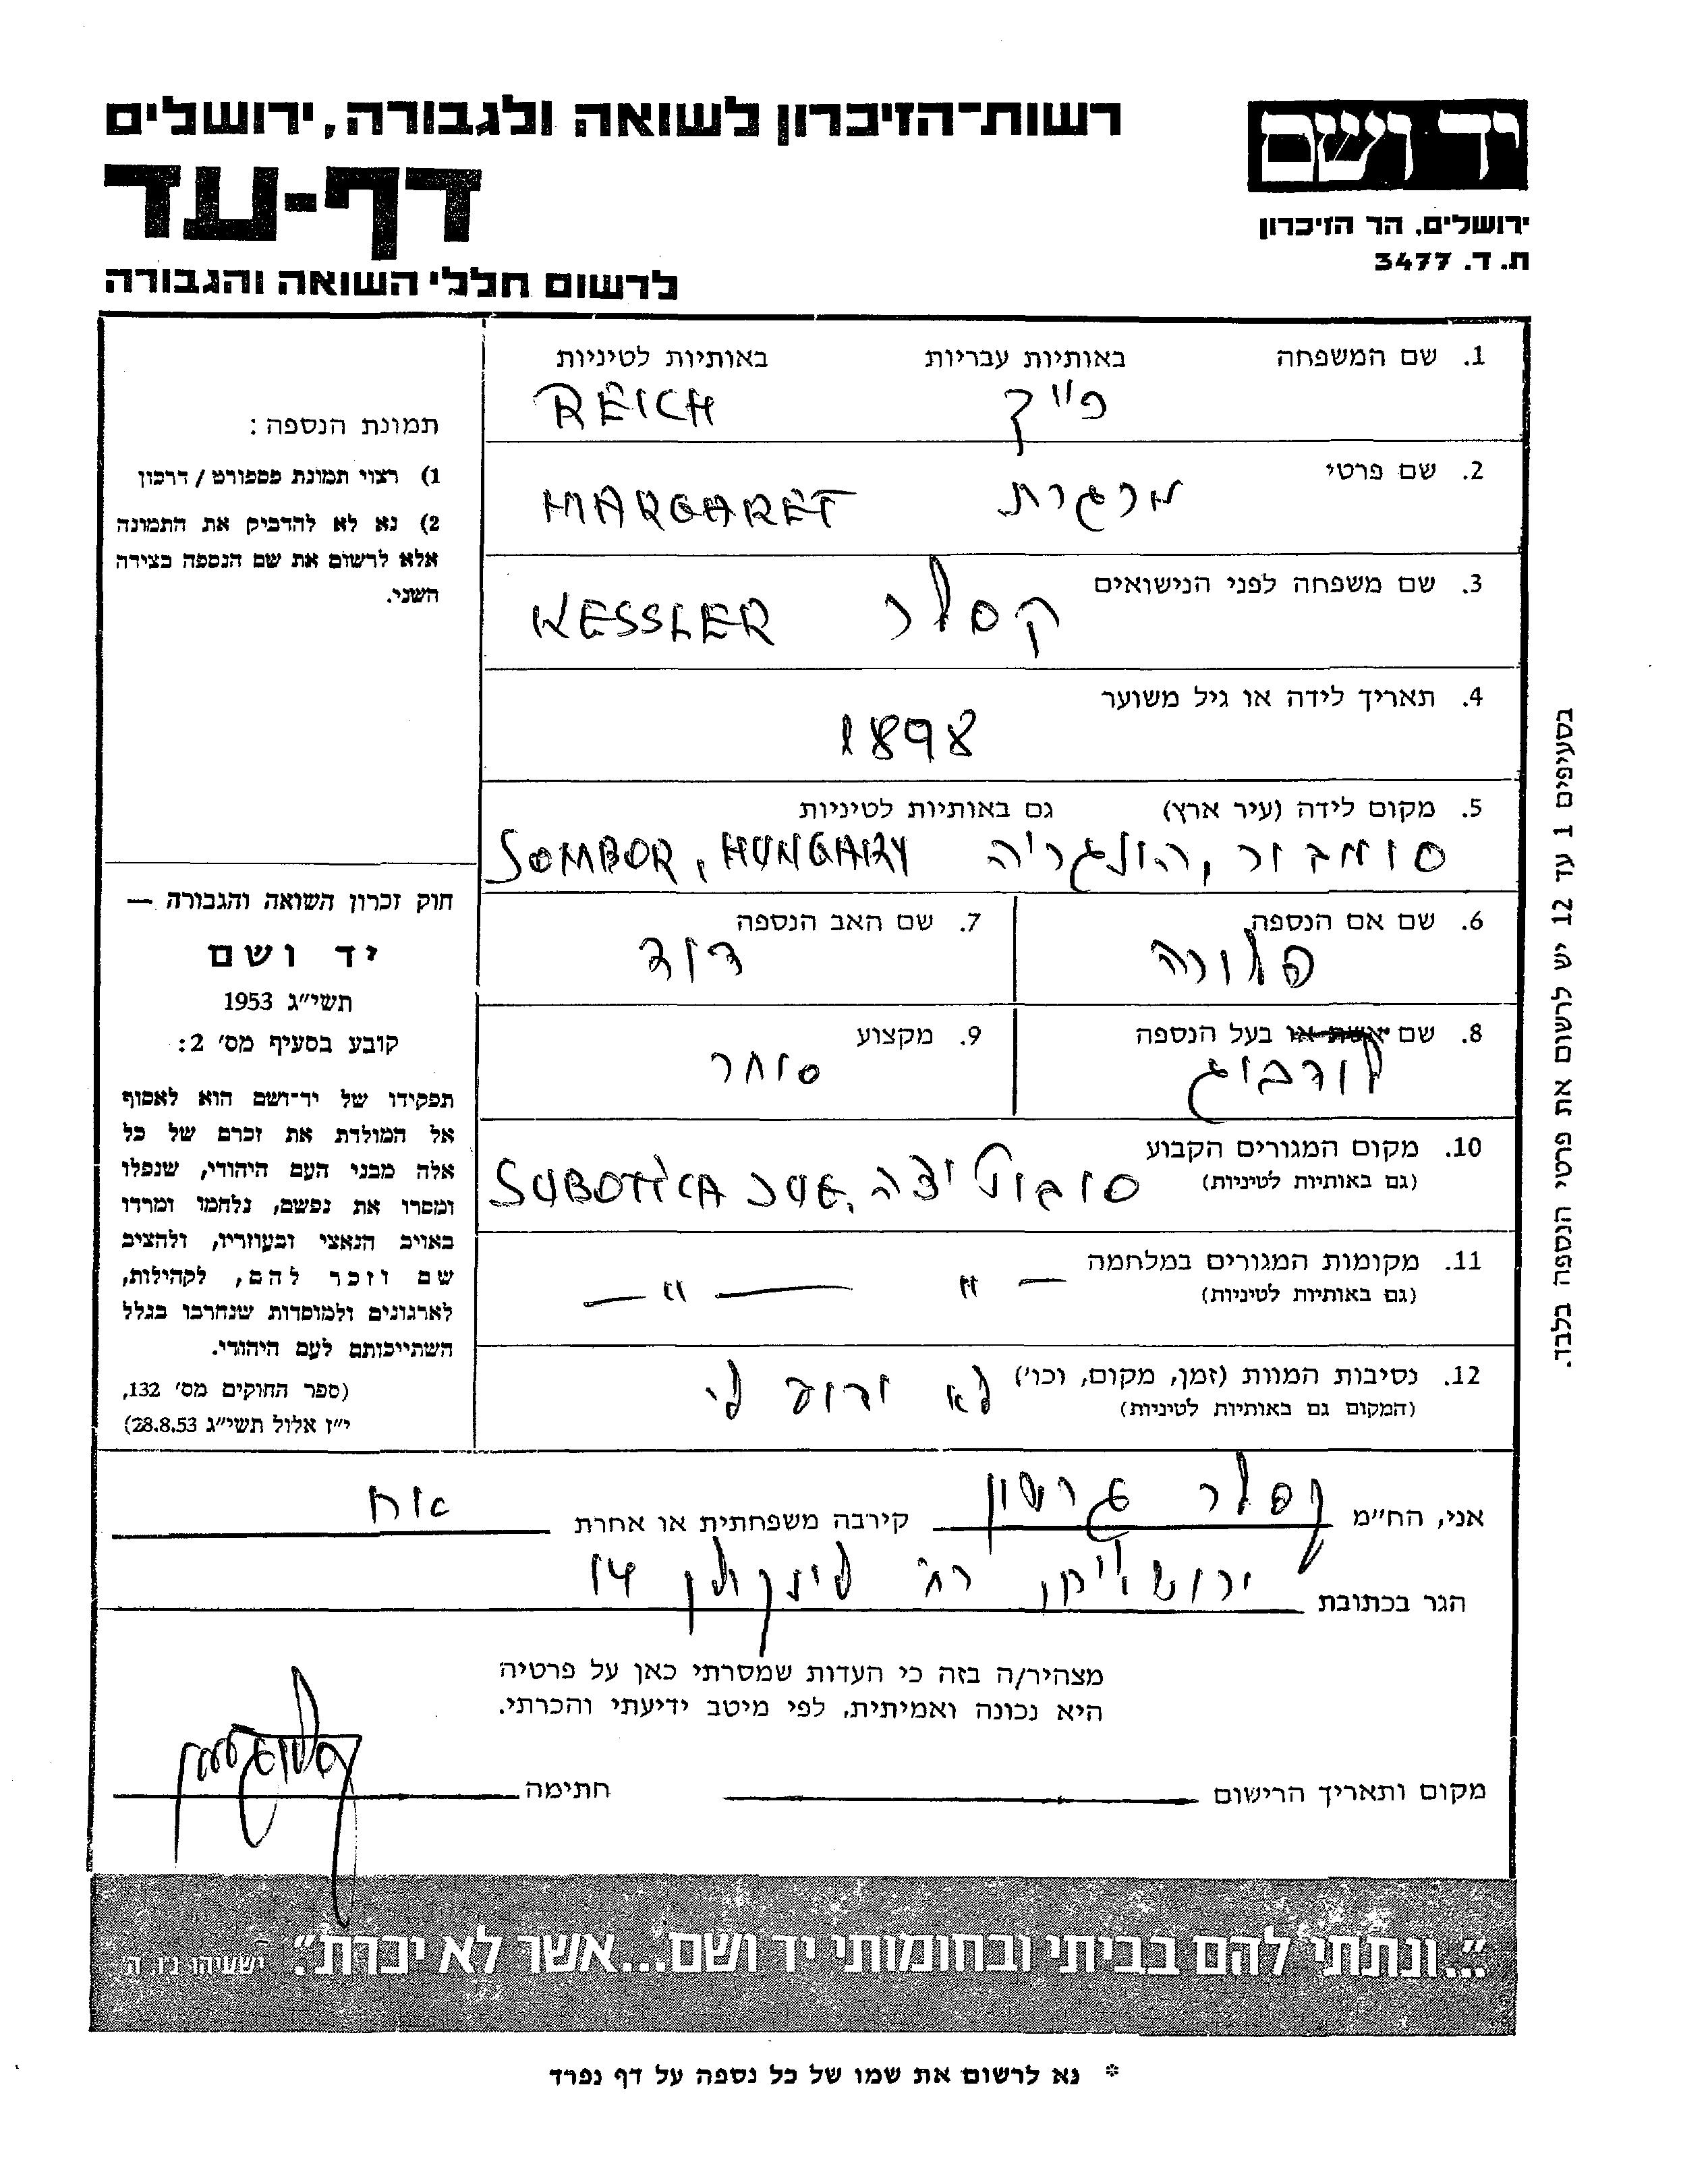 יד ושם
ירושלים, הר הזיכרון
ת. ד. 3477
רשות־הזיכרון לשואה ולגבורה, ירושלים
דף-עד
לרשום חללי השואה והגבורה
1. שם המשפחה באותיות עבריות באותיות לטיניות
רייך REICH
2. שם פרטי
מרגרת MARGARET
3. שם משפחה לפני הנישואים
קסלר KESSLER
4. תאריך לידה או גיל משוער
1898
5. מקום לידה (עיר ארץ) גם באותיות לטיניות
סומבור, הונגריה SOMBOR, HUNGARY
6. שם אם הנספה 7. שם האב הנספה
פלורה דוד
8. שם אשת או בעל הנספה 9. מקצוע
סוחר
10. מקום המגורים הקבוע
(גם באותיות לטיניות) סובוטיצה. SUBOTICA JUG.
11. מקומות המגורים במלחמה
(גם באותיות לטיניות) — " — — " —
12. נסיבות המוות (זמן, מקום, וכו') לא ידוע לי
(המקום גם באותיות לטיניות)
תמונת הנספה:
1) רצוי תמונת פספורט / דרכון
2) נא לא להדביק את התמונה
אלא לרשום את שם הנספה בצידה
השני.
חוק זכרון השואה והגבורה —
יד ושם
תשי"ג 1953
קובע בסעיף מס' 2:
תפקידו של יד־ושם הוא לאסוף
אל המולדת את זכרם של כל
אלה מבני העם היהודי, שנפלו
ומסרו את נפשם, נלחמו ומרדו
באויב הנאצי ובעוזריו, ולהציב
שם וזכר להם, לקהילות,
לארגונים ולמוסדות שנחרבו בגלל
השתייכותם לעם היהודי.
(ספר החוקים מס' 132,
י"ז אלול תשי"ג 28.8.53)
בסעיפים 1 עד 12 יש לרשום את פרטי הנספה בלבד.
אני, הח"מ קסלר גרשון קירבה משפחתית או אחרת אח
הגר בכתובת ירושלים, רח' לינקולן 14
מצהיר/ה בזה כי העדות שמסרתי כאן על פרטיה
היא נכונה ואמיתית, לפי מיטב ידיעתי והכרתי.
מקום ותאריך הרישום חתימה
"...ונתתי להם בביתי ובחומותי יד ושם...אשר לא יכרת". ישעיהו נו, ה
* נא לרשום את שמו של כל נספה על דף נפרד